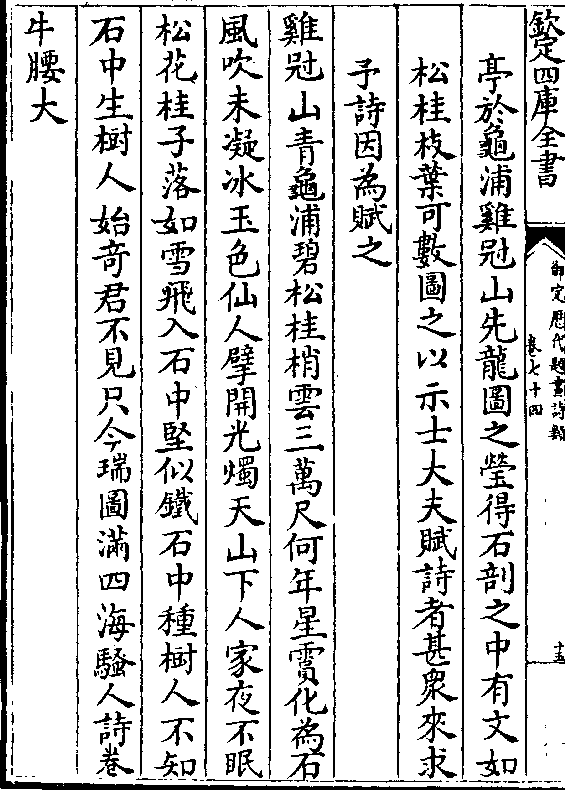 欽定四庫全書
御定歷代題畫詩類
卷七十四
十五
亭於龜浦雞冠山先龍圖之塋得石剖之中有文如
松桂枝葉可數圖之以示士大夫賦詩者甚衆來求
予詩因為賦之
雞冠山青龜浦碧松桂梢雲三萬尺何年星霣化為石
風吹未凝冰玉色仙人擘開光燭天山下人家夜不眠
松花桂子落如雪飛入石中堅似鐵石中種樹人不知
石中生樹人始竒君不見只今瑞圖滿四海騷人詩卷
牛腰大